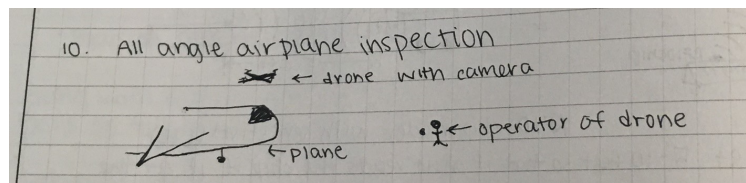 10. All angle airplane inspection
← drone with camera
← operator of drone
← plane